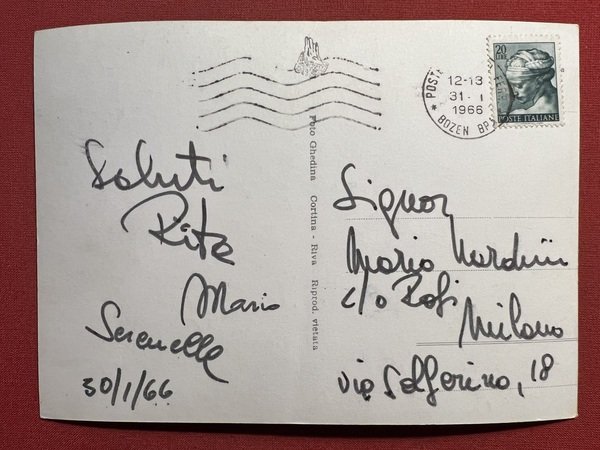 Saluti
Rita
Mario
Serenella
30/1/66
Foto Ghedina Cortina - Riva Riprod. vietata
POSTE
12-13
31. 1
1966
BOZEN BP
20
LIRE
POSTE ITALIANE
Signor
Mario Nardini
c/o Rofi
Milano
via Solferino, 18